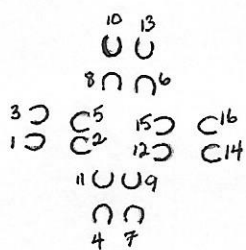 10 13
8 6
3 5 15 16
1 2 12 14
11 9
4 7